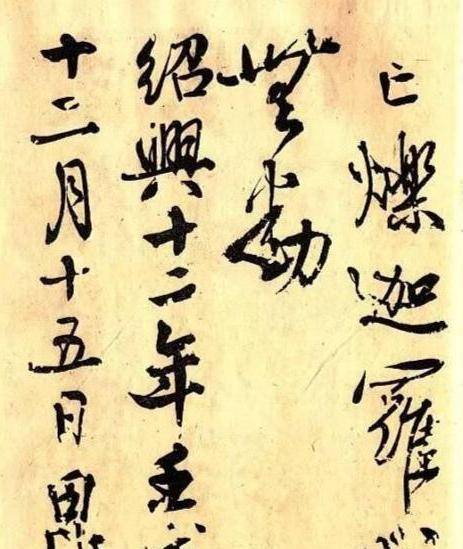 亡爍迦羅
無動
紹興十二年壬
十二月十五日